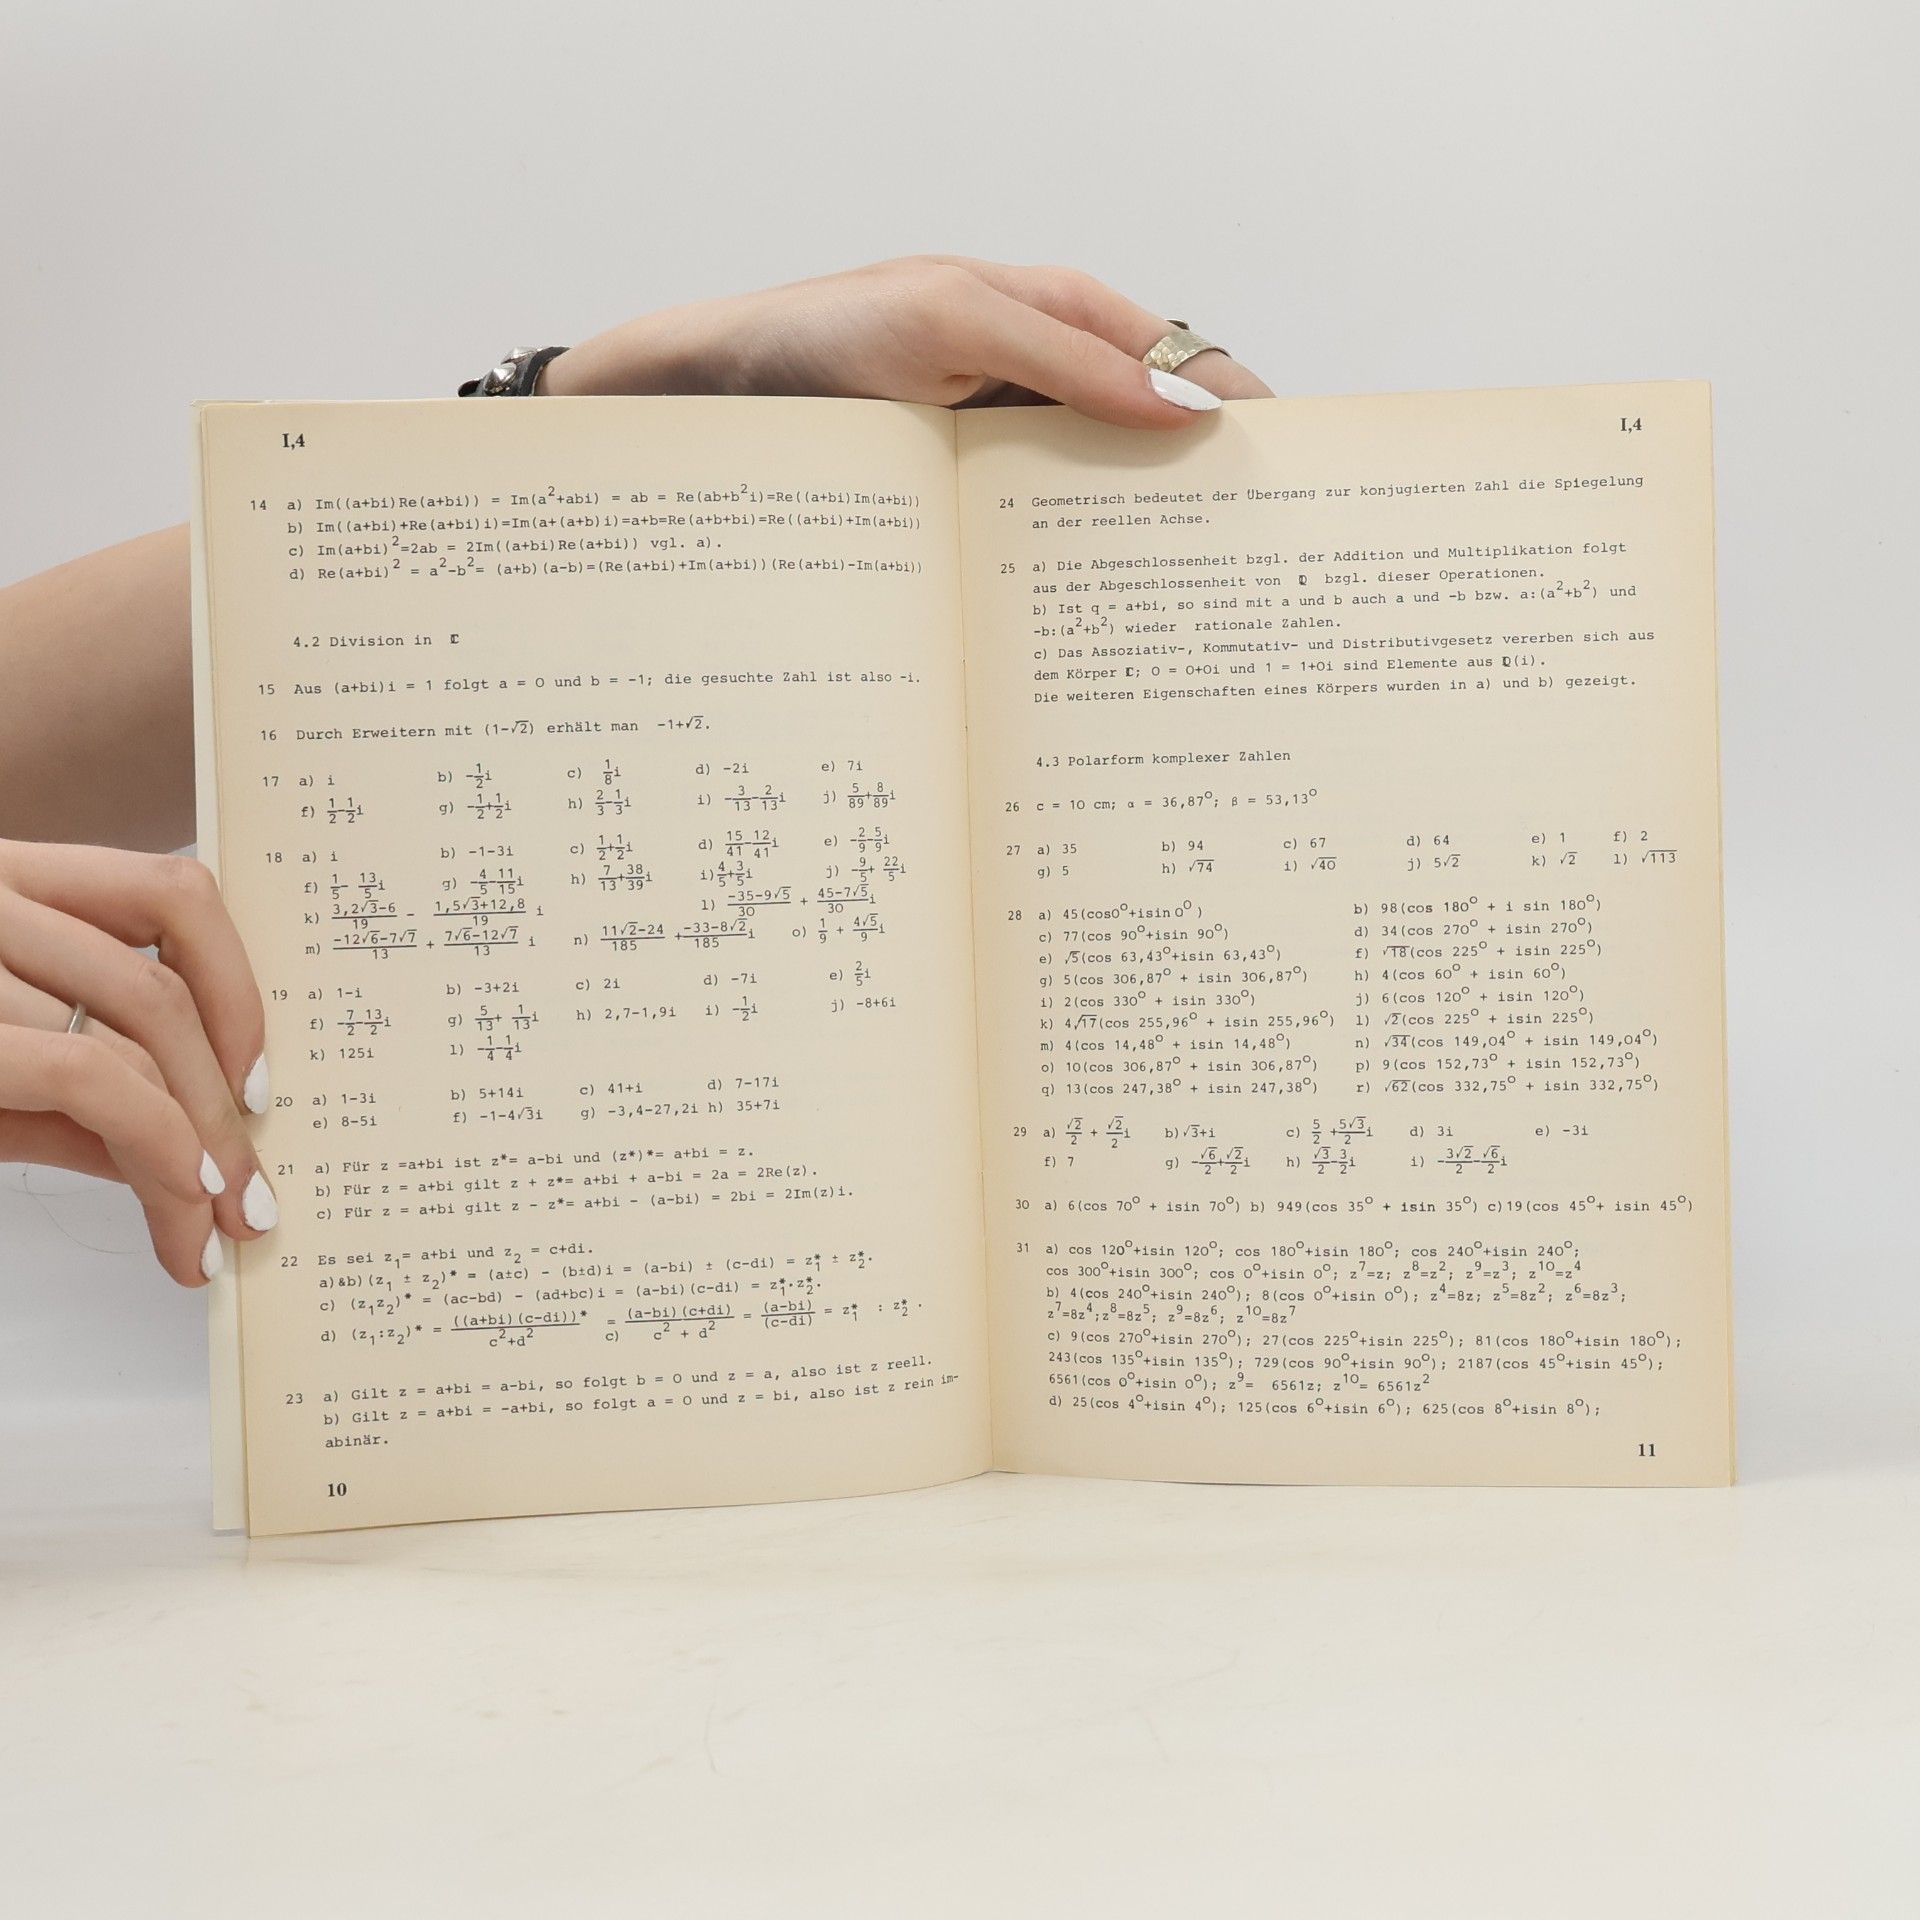 I,4
14 a) Im((a+bi)Re(a+bi)) = Im(a²+abi) = ab = Re(ab+b²i)=Re((a+bi)Im(a+bi))
b) Im((a+bi)+Re(a+bi)i)=Im(a+(a+b)i)=a+b=Re(a+b+bi)=Re((a+bi)+Im(a+bi))
c) Im(a+bi)²=2ab = 2Im((a+bi)Re(a+bi)) vgl. a).
d) Re(a+bi)² = a²-b²= (a+b)(a-b)=(Re(a+bi)+Im(a+bi))(Re(a+bi)-Im(a+bi))
4.2 Division in ℂ
15 Aus (a+bi)i = 1 folgt a = 0 und b = -1; die gesuchte Zahl ist also -i.
16 Durch Erweitern mit (1-√2) erhält man -1+√2.
17 a) i b) -1/2i c) 1/8i d) -2i e) 7i
f) 1/2-1/2i g) -1/2+1/2i h) 2/3-1/3i i) -3/13-2/13i j) 5/89+8/89i
18 a) i b) -1-3i c) 1/2+1/2i d) 15/41-12/41i e) -2/9-5/9i
f) 1/5- 13/5i g) -4/5-11/15i h) 7/13+38/39i i)4/5+3/5i j) -9/5+ 22/5i
k) (3,2√3-6)/19 - (1,5√3+12,8)/19 i l) (-35-9√5)/30 + (45-7√5)/30i
m) (-12√6-7√7)/13 + (7√6-12√7)/13 i n) (11√2-24)/185 +(-33-8√2)/185i o) 1/9 + 4√5/9i
19 a) 1-i b) -3+2i c) 2i d) -7i e) 2/5i
f) -7/2-13/2i g) 5/13+ 1/13i h) 2,7-1,9i i) -1/2i j) -8+6i
k) 125i l) -1/4-1/4i
20 a) 1-3i b) 5+14i c) 41+i d) 7-17i
e) 8-5i f) -1-4√3i g) -3,4-27,2i h) 35+7i
21 a) Für z =a+bi ist z*= a-bi und (z*)*= a+bi = z.
b) Für z = a+bi gilt z + z*= a+bi + a-bi = 2a = 2Re(z).
c) Für z = a+bi gilt z - z*= a+bi - (a-bi) = 2bi = 2Im(z)i.
22 Es sei z₁= a+bi und z₂ = c+di.
a)&b)(z₁ ± z₂)* = (a±c) - (b±d)i = (a-bi) ± (c-di) = z₁* ± z₂*.
c) (z₁z₂)* = (ac-bd) - (ad+bc)i = (a-bi)(c-di) = z₁*·z₂*.
d) (z₁:z₂)* = ((a+bi)(c-di))*/(c²+d²) =c) (a-bi)(c+di)/(c² + d²) = (a-bi)/(c-di) = z₁* : z₂* .
23 a) Gilt z = a+bi = a-bi, so folgt b = 0 und z = a, also ist z reell.
b) Gilt z = a+bi = -a+bi, so folgt a = 0 und z = bi, also ist z rein im-
abinär.
10
I,4
24 Geometrisch bedeutet der Übergang zur konjugierten Zahl die Spiegelung
an der reellen Achse.
25 a) Die Abgeschlossenheit bzgl. der Addition und Multiplikation folgt
aus der Abgeschlossenheit von ℚ bzgl. dieser Operationen.
b) Ist q = a+bi, so sind mit a und b auch a und -b bzw. a:(a²+b²) und
-b:(a²+b²) wieder rationale Zahlen.
c) Das Assoziativ-, Kommutativ- und Distributivgesetz vererben sich aus
dem Körper ℂ; 0 = 0+0i und 1 = 1+0i sind Elemente aus ℚ(i).
Die weiteren Eigenschaften eines Körpers wurden in a) und b) gezeigt.
4.3 Polarform komplexer Zahlen
26 c = 10 cm; α = 36,87°; β = 53,13°
27 a) 35 b) 94 c) 67 d) 64 e) 1 f) 2
g) 5 h) √74 i) √40 j) 5√2 k) √2 l) √113
28 a) 45(cos0°+isin0°) b) 98(cos 180° + i sin 180°)
c) 77(cos 90°+isin 90°) d) 34(cos 270° + isin 270°)
e) √5(cos 63,43°+isin 63,43°) f) √18(cos 225° + isin 225°)
g) 5(cos 306,87° + isin 306,87°) h) 4(cos 60° + isin 60°)
i) 2(cos 330° + isin 330°) j) 6(cos 120° + isin 120°)
k) 4√17(cos 255,96° + isin 255,96°) l) √2(cos 225° + isin 225°)
m) 4(cos 14,48° + isin 14,48°) n) √34(cos 149,04° + isin 149,04°)
o) 10(cos 306,87° + isin 306,87°) p) 9(cos 152,73° + isin 152,73°)
q) 13(cos 247,38° + isin 247,38°) r) √62(cos 332,75° + isin 332,75°)
29 a) √2/2 + √2/2i b)√3+i c) 5/2 +5√3/2i d) 3i e) -3i
f) 7 g) -√6/2+√2/2i h) √3/2-3/2i i) -3√2/2-√6/2i
30 a) 6(cos 70° + isin 70°) b) 949(cos 35° + isin 35°) c)19(cos 45°+ isin 45°)
31 a) cos 120°+isin 120°; cos 180°+isin 180°; cos 240°+isin 240°;
cos 300°+isin 300°; cos 0°+isin 0°; z⁷=z; z⁸=z²; z⁹=z³; z¹⁰=z⁴
b) 4(cos 240°+isin 240°); 8(cos 0°+isin 0°); z⁴=8z; z⁵=8z²; z⁶=8z³;
z⁷=8z⁴;z⁸=8z⁵; z⁹=8z⁶; z¹⁰=8z⁷
c) 9(cos 270°+isin 270°); 27(cos 225°+isin 225°); 81(cos 180°+isin 180°);
243(cos 135°+isin 135°); 729(cos 90°+isin 90°); 2187(cos 45°+isin 45°);
6561(cos 0°+isin 0°); z⁹= 6561z; z¹⁰= 6561z²
d) 25(cos 4°+isin 4°); 125(cos 6°+isin 6°); 625(cos 8°+isin 8°);
11